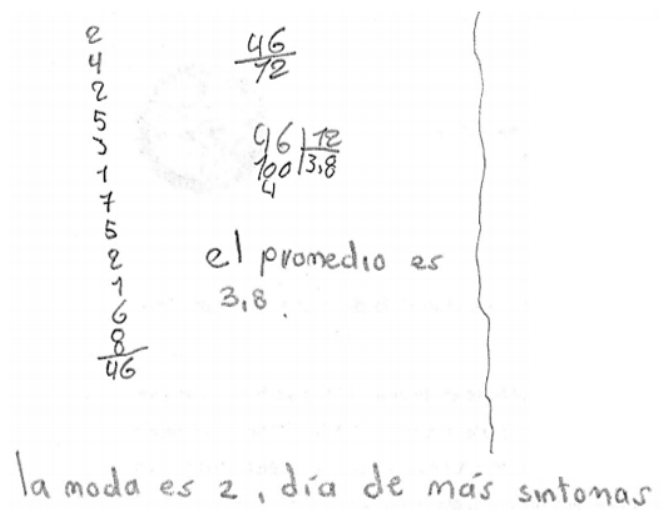 2
4
2
5
3
1
7
5
2
1
6
8
46
46
12
46 | 12
100 | 3,8
4
el promedio es
3,8.
la moda es 2, día de más sintomas